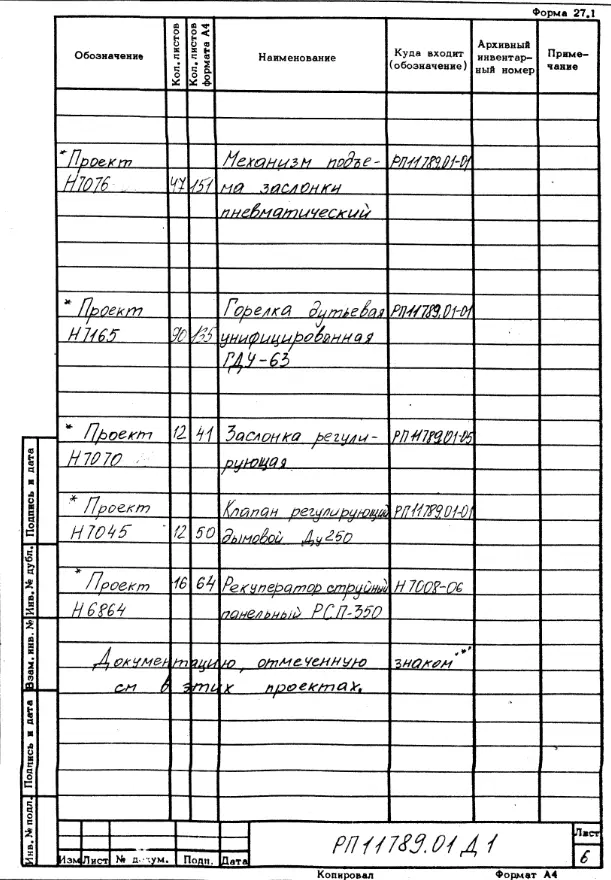 Форма 27.1
Обозначение
Кол. листов
Кол. листов формата А4
Наименование
Куда входит (обозначение)
Архивный инвентарный номер
Примечание
* Проект Механизм подъе- РП11789.01-01
Н7076 47 151 ма заслонки
пневматический
* Проект Горелка дутьевая РП11789.01-01
Н7165 90 135 унифицированная
ГДУ-63
* Проект 12 41 Заслонка регули- РП11789.01-05
Н7070 рующая
* Проект Клапан регулирующий РП11789.01-01
Н7045 12 50 дымовой Ду250
* Проект 16 64 Рекуператор струйный Н7008-06
Н6864 панельный РСП-350
Документацию, отмеченную знаком "*"
см в этих проектах.
Инв. № подл.
Подпись и дата
Взам. инв. №
Инв. № дубл.
Подпись и дата
РП11789.01 Д1
Лист
6
Изм Лист № докум. Подп. Дата
Копировал Формат А4